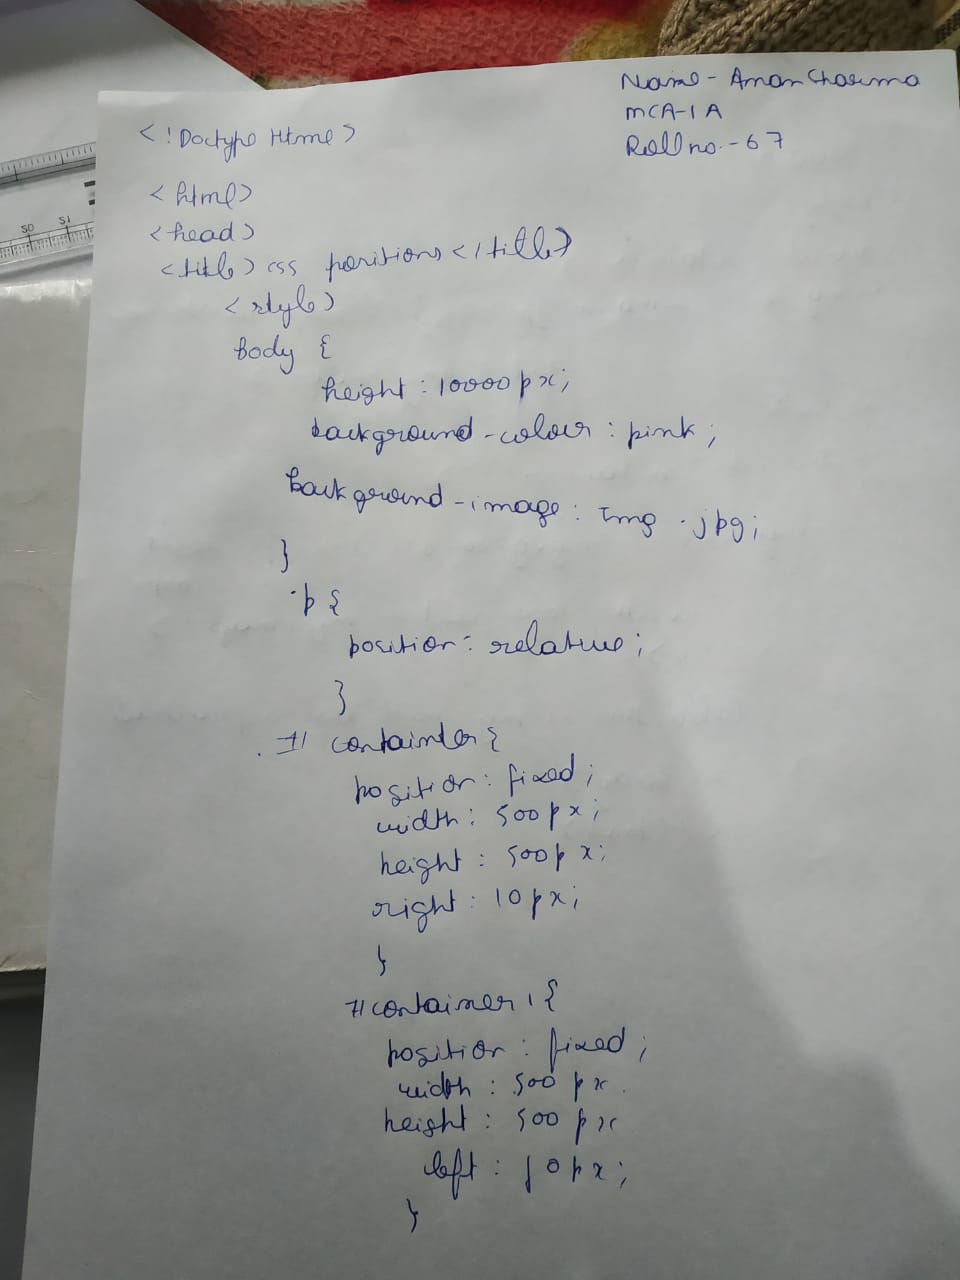 Name - Aman Sharma
MCA-1A
Roll no.- 67
<!Doctype Html>
<html>
<head>
<title> css positions </title>
<style>
body {
height : 10000px;
background-colour : pink;
background-image : Img .jpg;
}
.p {
position : relative;
}
# container {
position : fixed;
width : 500px;
height : 500px;
right : 10px;
}
#container 1 {
position : fixed;
width : 500 px.
height : 500 px
left : 10px;
}
50 51